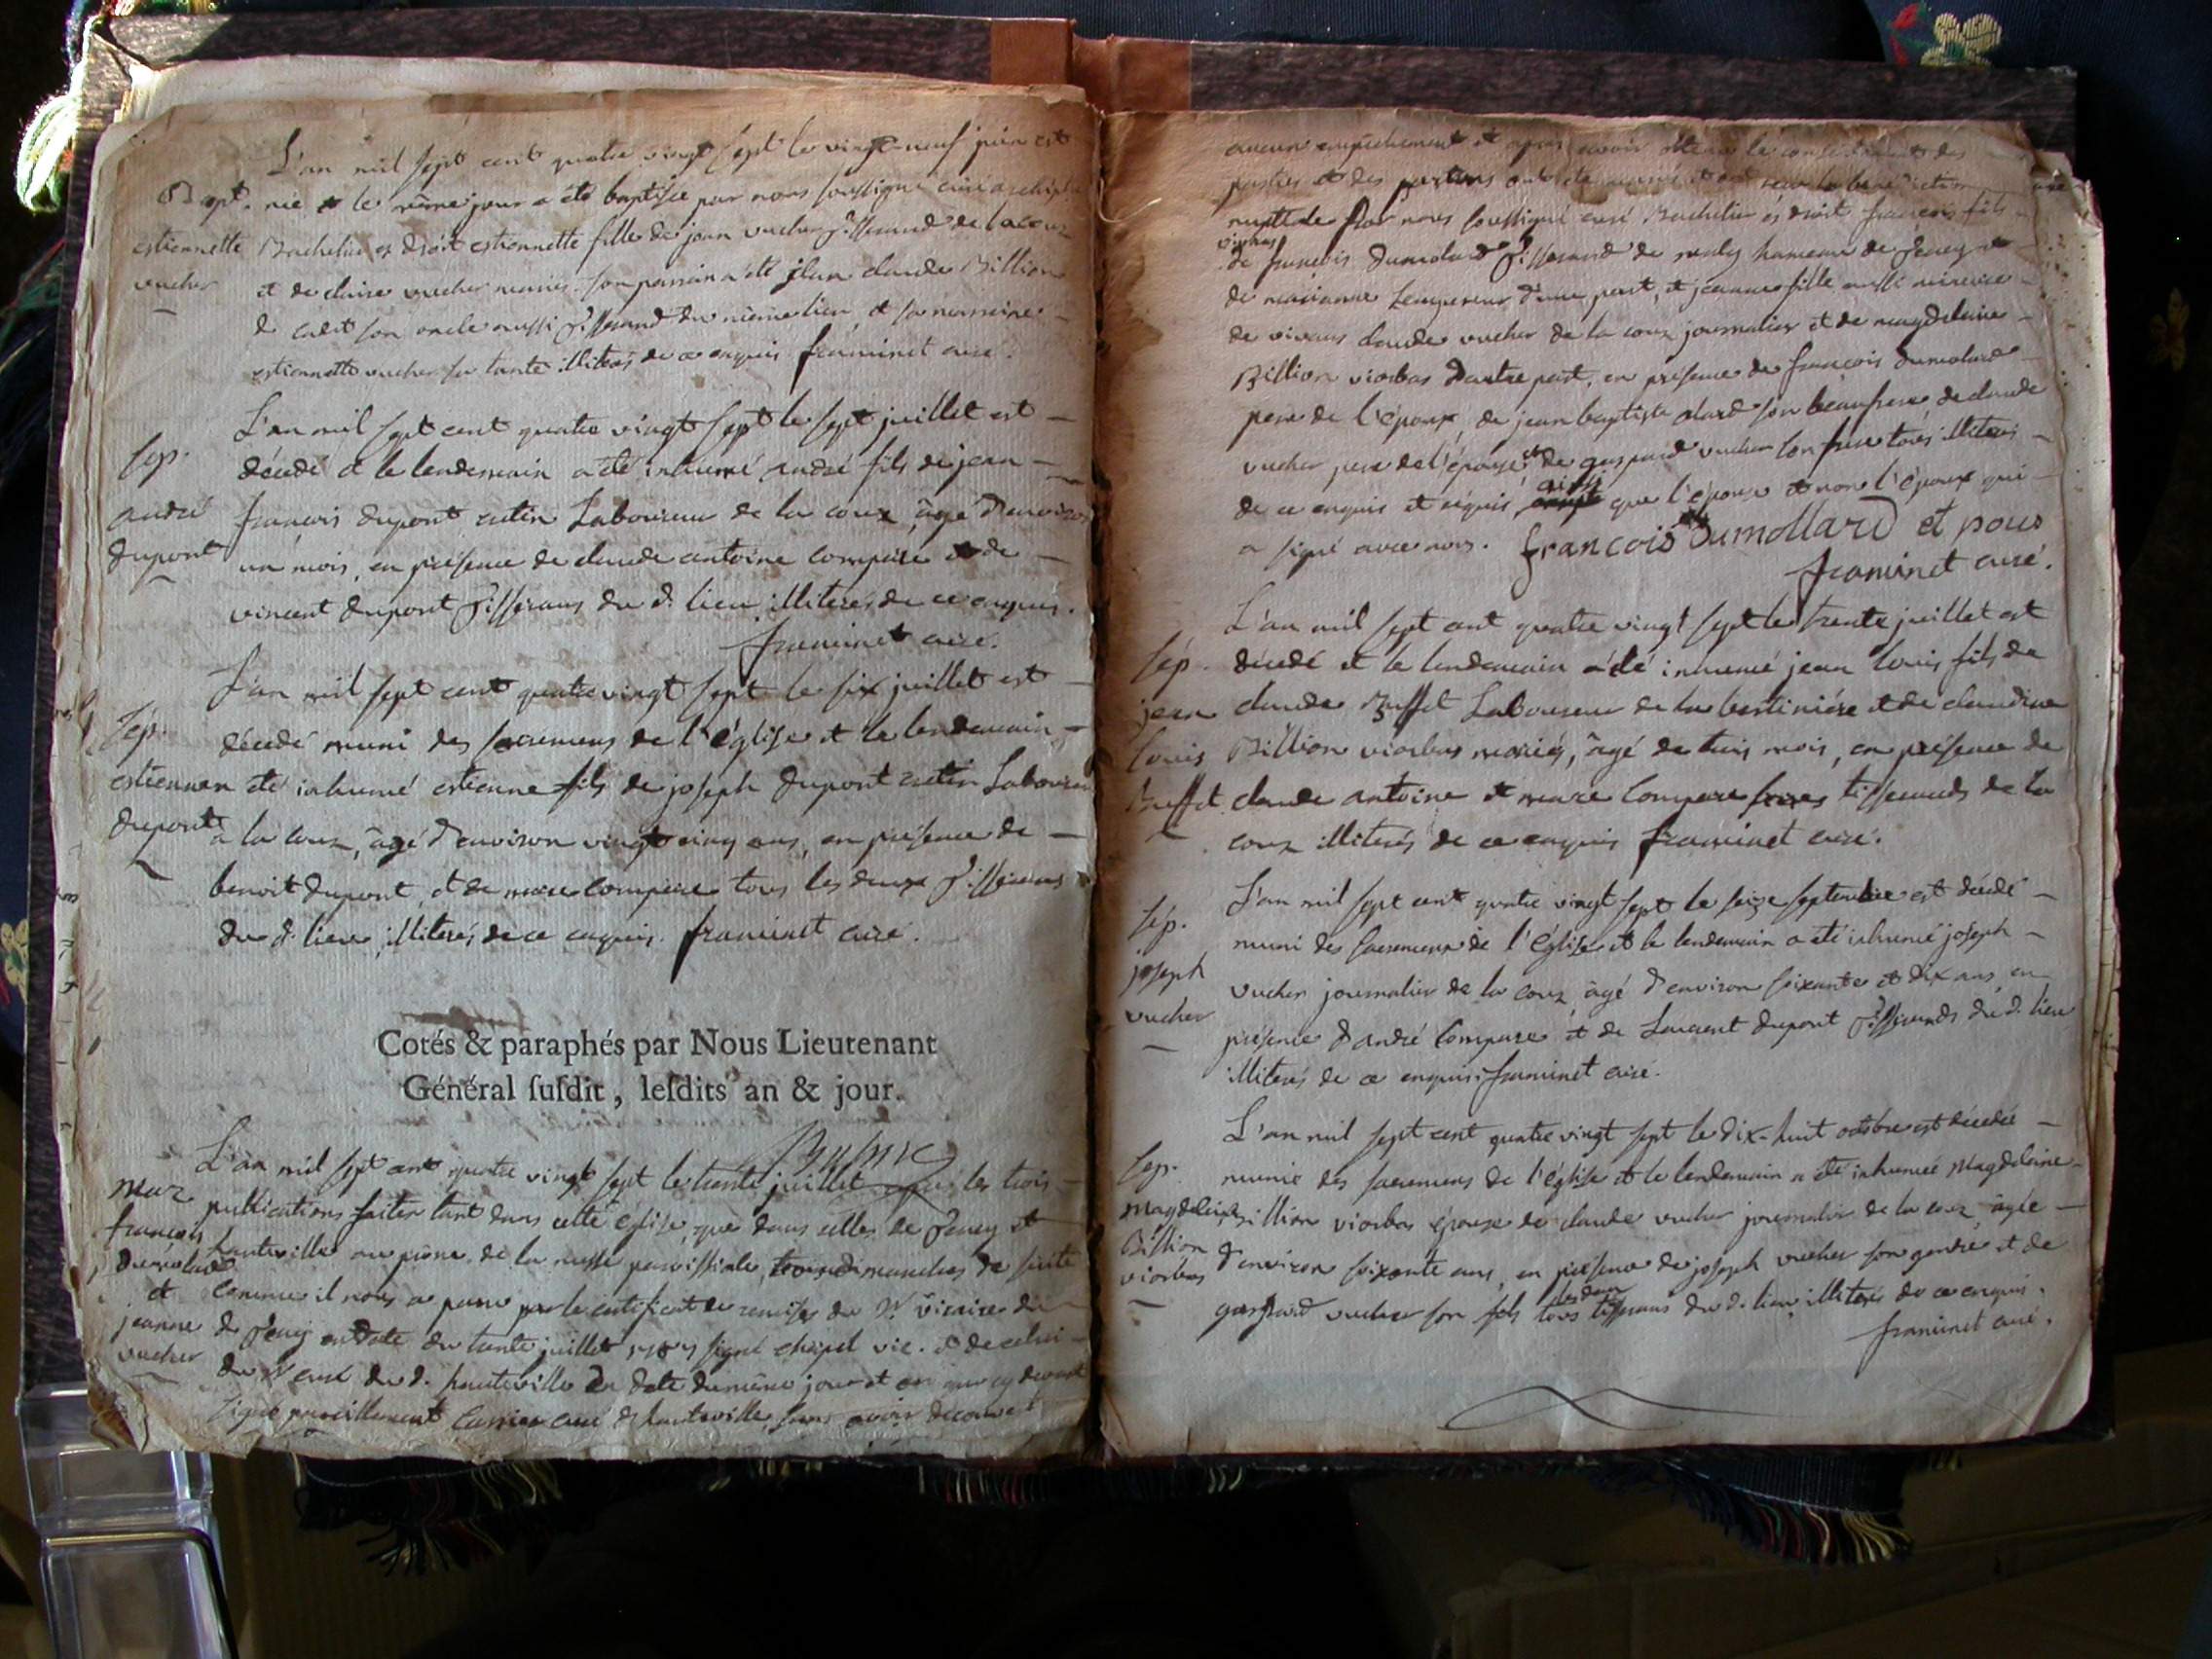 L'an mil sept cent quatre vingt sept le vingt-neuf juin est
Bapt. née et le même jour a été baptisée par nous soussigné curé archip.
estiennette Bachelier es droit estiennette fille de jean vucher tisserand de la couz
vucher et de claire vucher mariés. son parrain a été jean claude Billion
son oncle aussi tisserand du même lieu, et sa marraine
estiennette vucher sa tante illiterés de ce enquis framinet curé.
L'an mil sept cent quatre vingt sept le sept juillet est
Sep. décédé et le lendemain a été inhumé andré fils de jean
andré françois dupont cretin Laboureur de la couz, âgé d'environ
dupont un mois, en présence de claude antoine compère et de
vincent dupont tisserans du d. lieu illiterés de ce enquis.
framinet curé.
L'an mil sept cent quatre vingt sept le six juillet est
Sép. décédé muni des sacremens de l'église et le lendemain
estienne a été inhumé estienne fils de joseph dupont cretin Laboureur
dupont à la couz, âgé d'environ vingt cinq ans, en présence de
benoit dupont, et de marc compère tous les deux tisserans
du d. lieu, illiterés de ce enquis. framinet curé.
Cotés & paraphés par Nous Lieutenant
Général ſuſdit, leſdits an & jour.
L'an mil sept cent quatre vingt sept le trente juillet après les trois
mar. publications faites tant dans cette église, que dans celles de Jeney et
françois hauteville au prône de la messe paroissiale, trois dimanches de suite
dumolard
et comme il nous a paru par le certificat de remises du Sr. vicaire du
jeanne d. Jeney en date du trente juillet 1787 signé chapel vic. et de celui
vucher du Sr curé du d. hauteville en date du même jour et an que cy devant
signé pareillement curé d'hauteville, sans avoir découvert
aucun empêchement et après avoir obtenu le consentement des
parties et des parens ont reçu la bénédiction
nuptiale par nous soussigné curé Bachelier és droit françois fils
vivans
de françois dumolard tisserand de hameau de Jeney et
de marianne Lempereur d'une part, et jeanne fille aussi mineure
de vivans claude vucher de la couz journalier et de magdelaine
Billion viorbas d'autre part, en présence de françois dumolard
pere de l'époux, de jean baptiste alard son beaufrere de claude
vucher pere de l'épouse et de gaspard vucher son frere tous illiterés
de ce enquis et requis ainsi que l'épouse et non l'époux qui
a signé avec nous. francois Dumollard et nous
framinet curé.
L'an mil sept cent quatre vingt sept le trente juillet est
Sép. décédé et le lendemain a été inhumé jean louis fils de
jean claude Buffet Laboureur de la bertinière et de claudine
louis Billion viorbas mariés, âgé de trois mois, en présence de
Buffet claude antoine et marc Compere freres tisserands de la
couz illiterés de ce enquis framinet curé.
L'an mil sept cent quatre vingt sept le seize septembre est décédé
Sép. muni des sacremens de l'église et le lendemain a été inhumé joseph
joseph vucher journalier de la couz, âgé d'environ soixante et dix ans, en
vucher présence d'andré Compere, et de Laurent dupont tisserands du d. lieu
illiterés de ce enquis. framinet curé.
L'an mil sept cent quatre vingt sept le dix-huit octobre est décédée
Sep. munie des sacremens de l'église et le lendemain a été inhumée Magdelaine
Magdelaine Billion viorbas épouse de claude vucher journalier de la couz, âgée
Billion d'environ soixante ans, en présence de joseph vucher son gendre et de
viorbas
gaspard vucher son fils tous les deux tisserans du d. lieu, illiterés de ce enquis.
framinet curé.